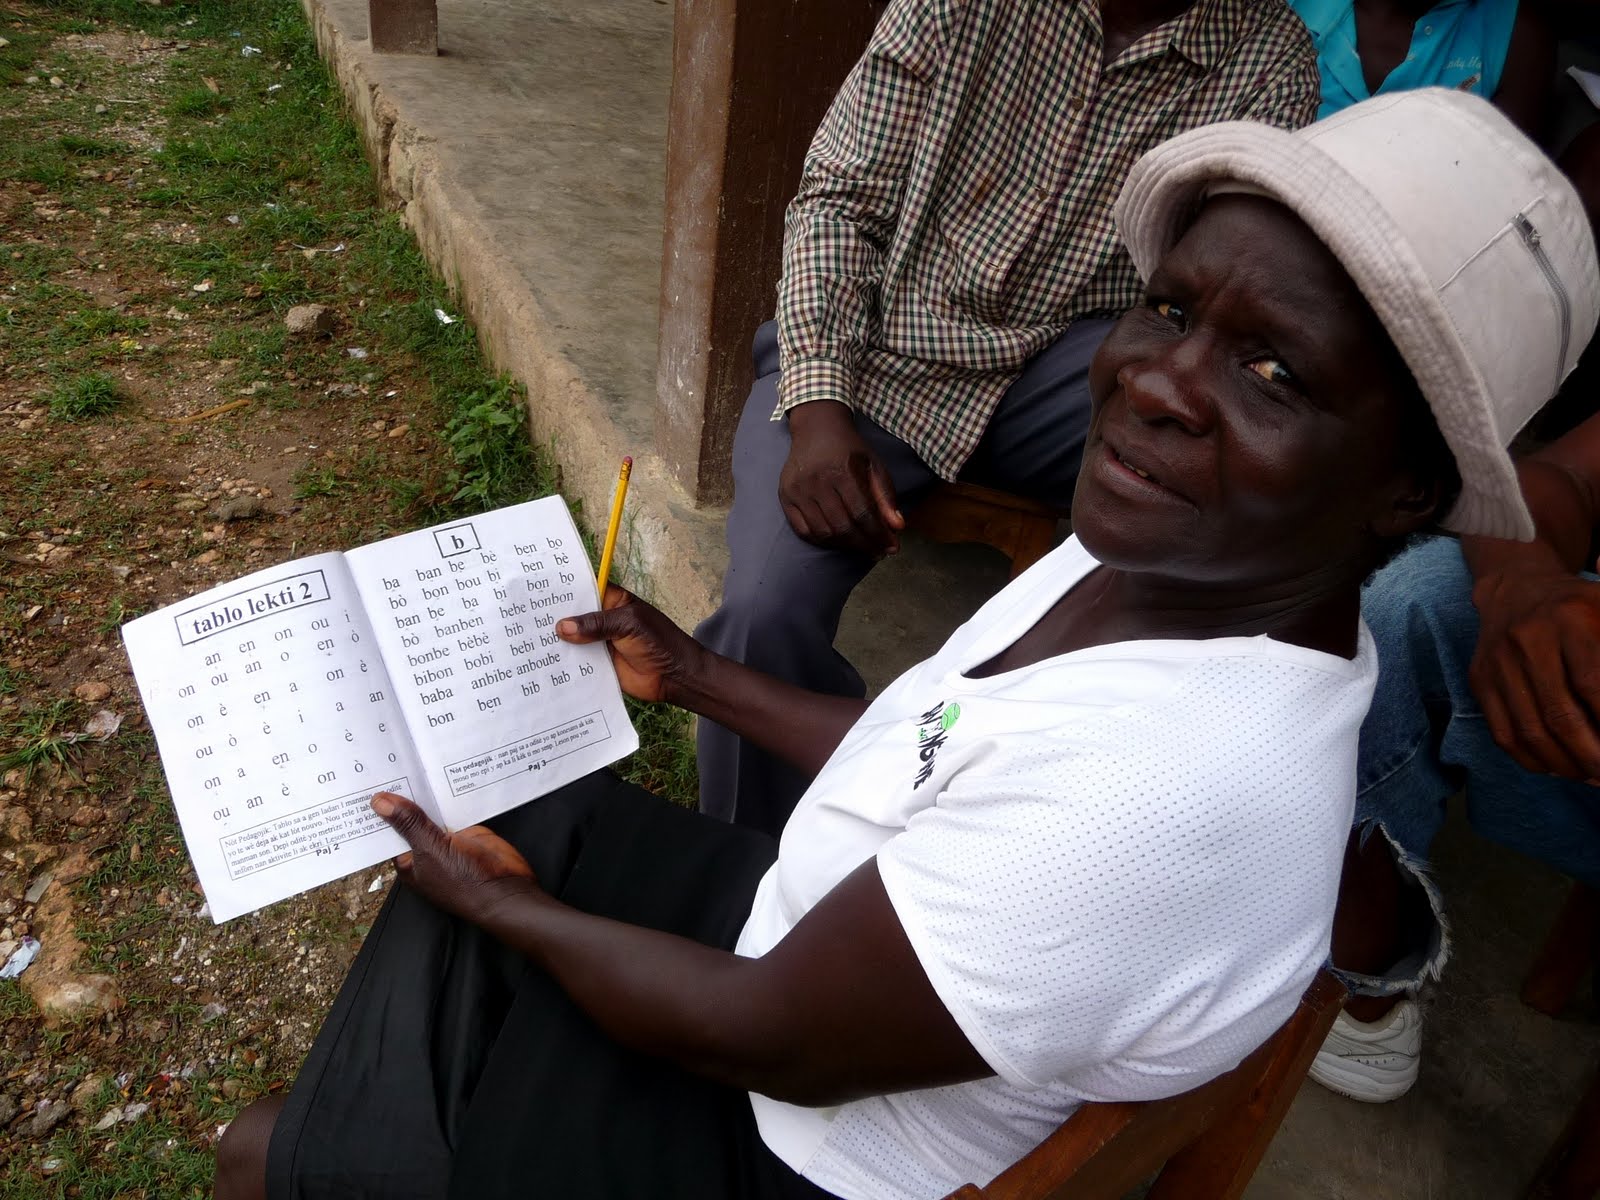 tablo lekti 2
an en on ou i
on ou an o en ò
on è en a on è
ou ò è i a an
on a en o è e
ou an è on ò o
Nòt Pedagojik: Tablo sa a gen ladan l manman oditè
yo te wè deja ak kat lòt nouvo. Nou refe l
manman son. Depi oditè yo metrize l y ap
anfilen nan aktivite li ak ekri. Leson pou yon
Paj 2
b
ba ban be bè ben bo
bò bon bou bi ben bè
ban be ba bi bon bo
bò banben bebe bonbon
bonbe bèbè bib bab
bibon bobi bebi bòb
baba anbibe anboube
bon ben bib bab bò
Nòt pedagojik : nan paj sa a oditè yo ap konstwi mo ak kèk
moso mo epi y ap ka li kèk ti mo senp. Leson pou yon
semèn.
Paj 3